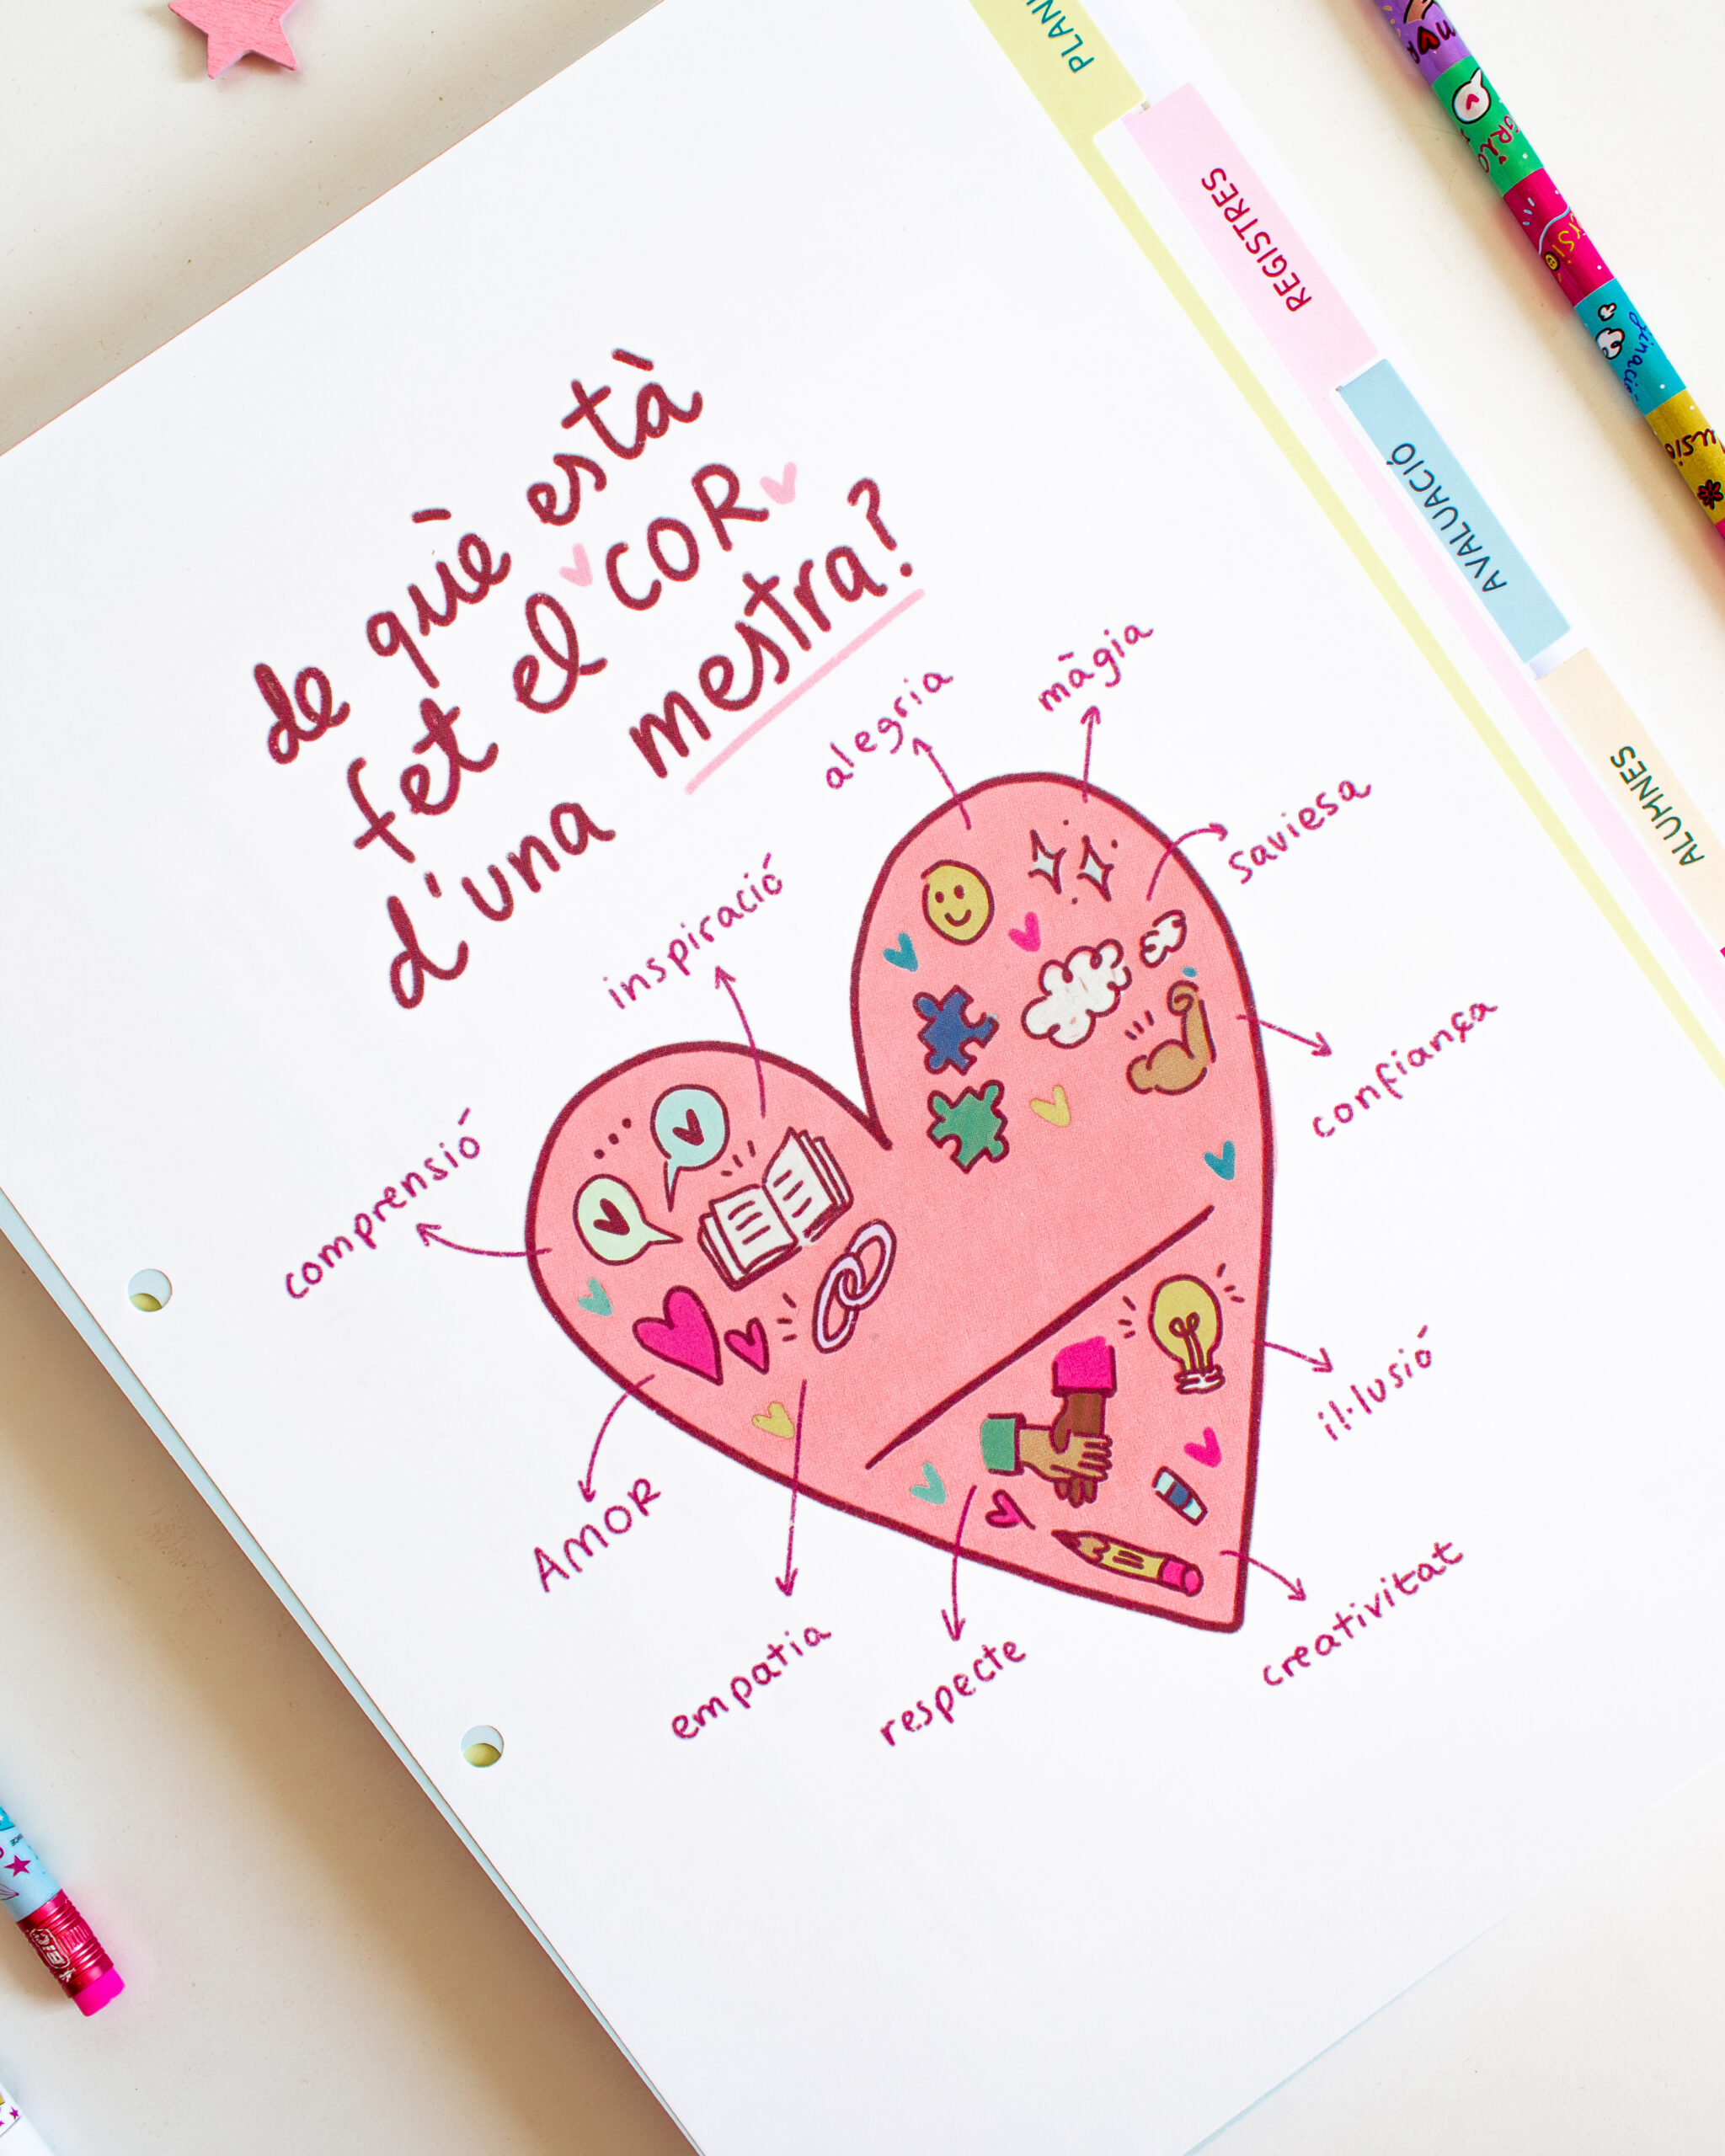 de què està
fet el COR
d'una mestra?
alegria
màgia
saviesa
inspiració
confiança
comprensió
il·lusió
AMOR
empatia
respecte
creativitat
REGISTRES
AVALUACIÓ
ALUMNES
BIC